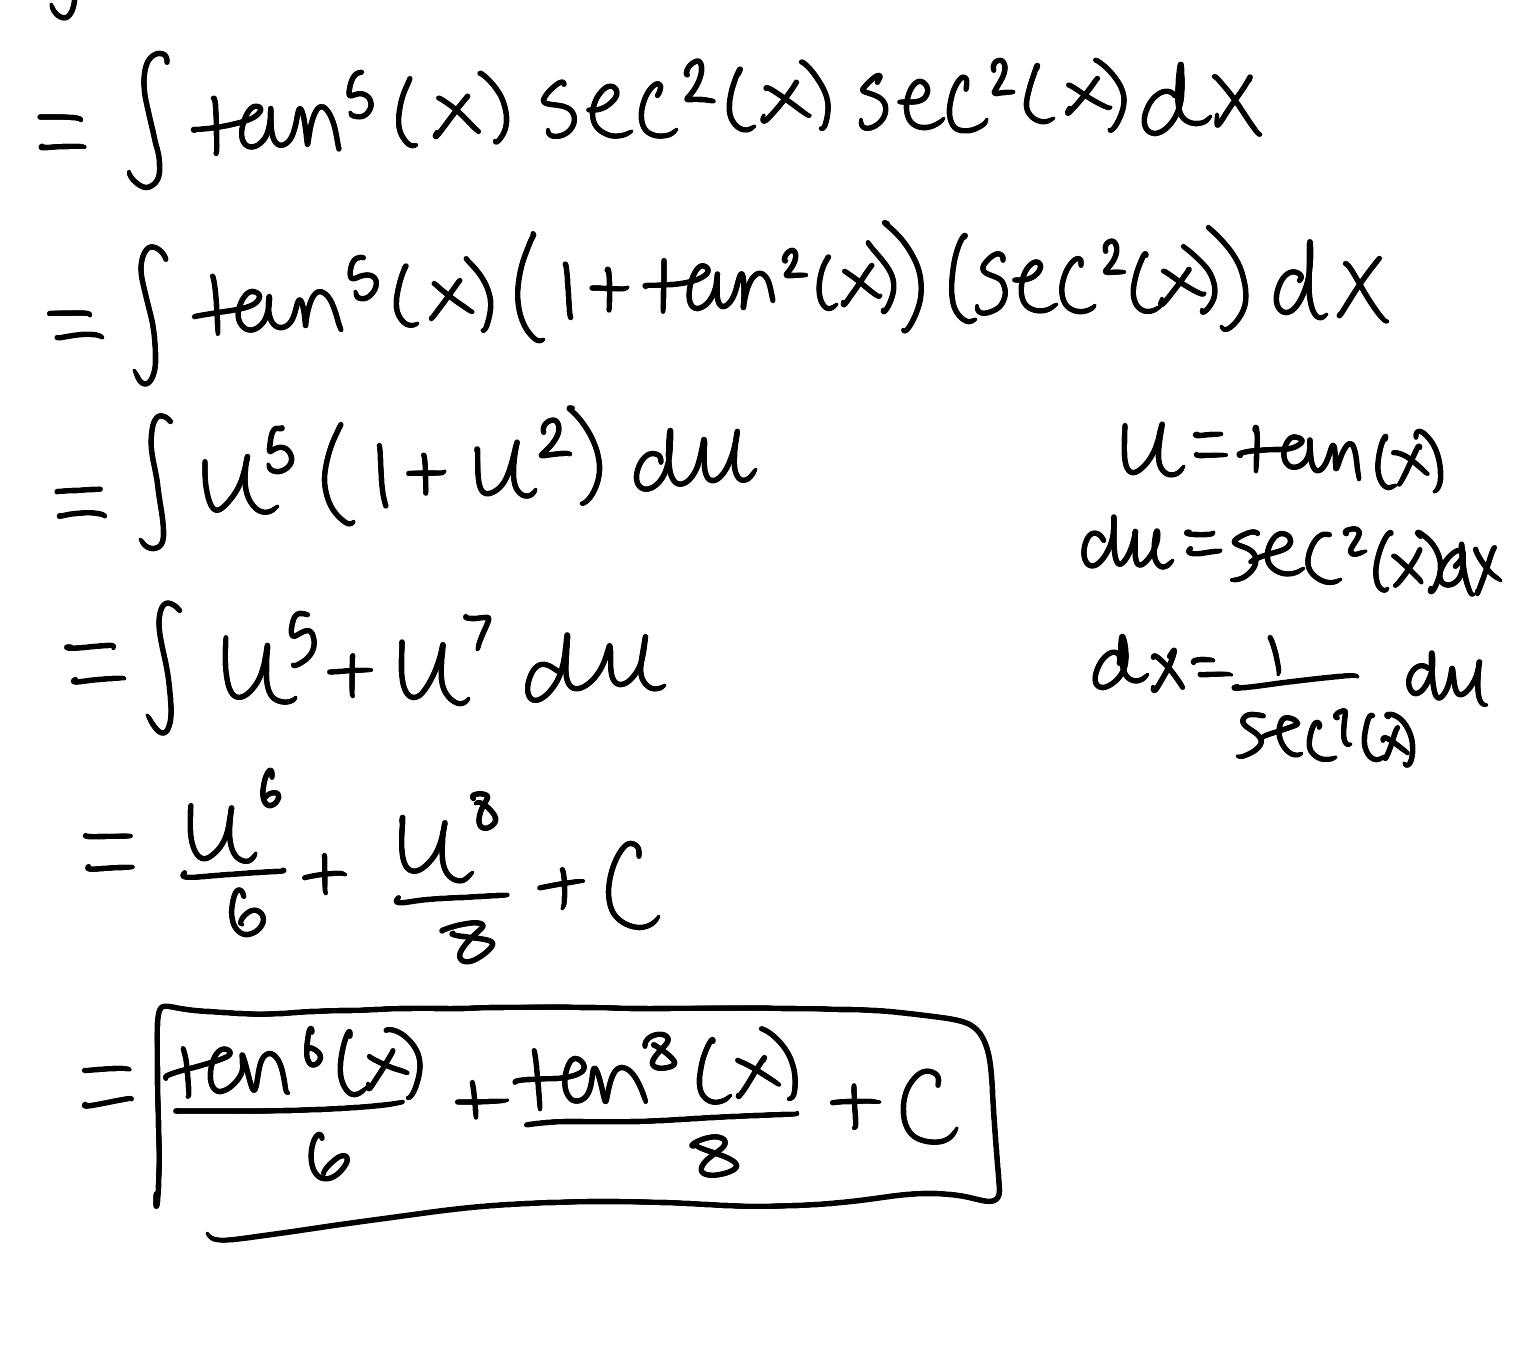 = ∫ tan⁵(x) sec²(x) sec²(x) dx
= ∫ tan⁵(x) (1 + tan²(x)) (sec²(x)) dx
= ∫ u⁵ (1 + u²) du
u = tan(x)
du = sec²(x) dx
= ∫ u⁵ + u⁷ du
dx = 1/sec²(x) du
= u⁶/6 + u⁸/8 + C
= tan⁶(x)/6 + tan⁸(x)/8 + C